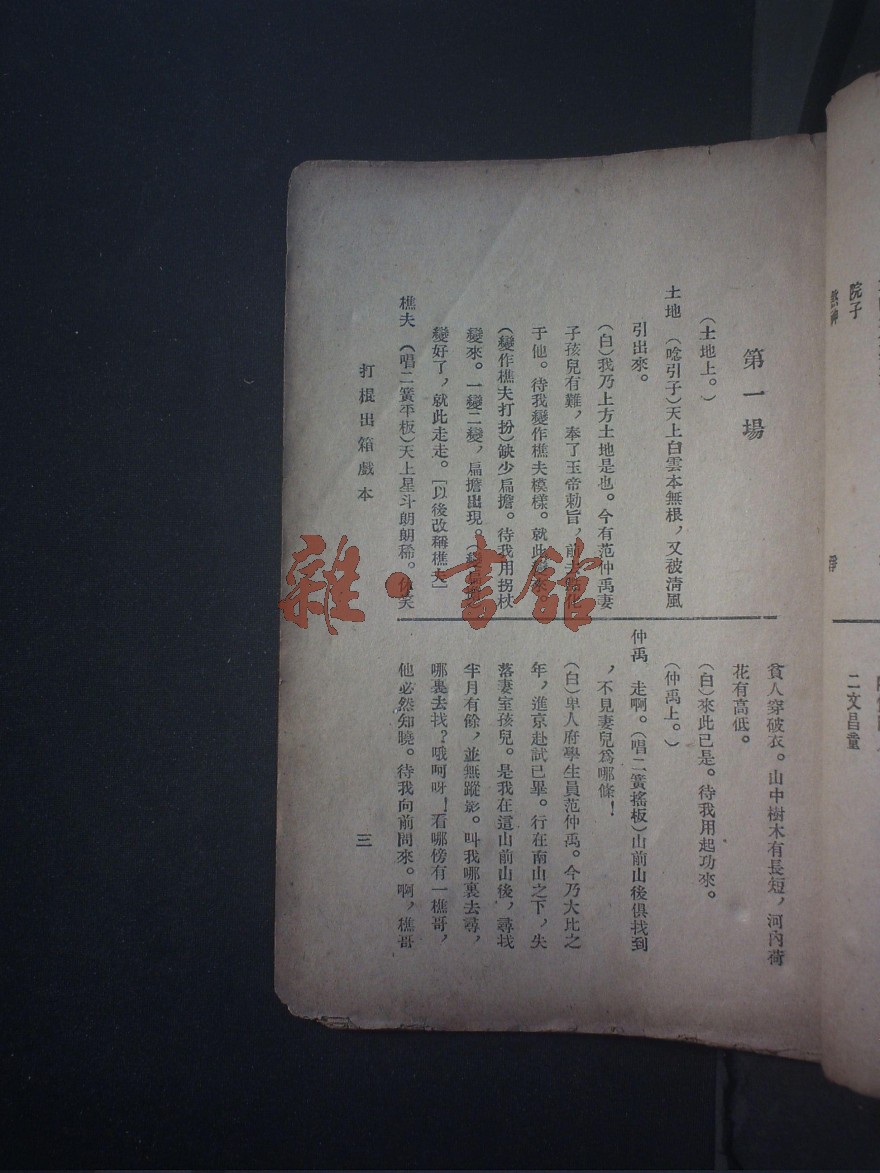 第一場
（土地上。）
土地　（唸引子）天上白雲本無根，又被淸風
引出來。
（白）我乃上方土地是也。今有范仲禹妻
子孩兒有難，奉了玉帝勅旨，前去點化
于他。待我變作樵夫模樣。就此變來
（變作樵夫打扮）缺少扁擔。待我用拐杖
變來。一變二變，扁擔出現。（
變好了，就此走走。［以後改稱樵夫］
樵夫　（唱二簧平板）天上星斗朗朗稀。你笑
貧人穿破衣。山中樹木有長短，河內荷
花有高低。
（白）來此已是。待我用起功來。
（仲禹上。）
仲禹　走啊。（唱二簧搖板）山前山後俱找到
，不見妻兒爲哪條！
（白）卑人府學生員范仲禹。今乃大比之
年，進京赴試已畢。行在南山之下，失
落妻室孩兒。是我在這山前山後，尋找
半月有餘，並無蹤影。叫我哪裏去尋，
哪裏去找？哦呵呀！看哪傍有一樵哥，
他必然知曉。待我向前問來。啊，樵哥
打棍出箱戲本
三
院子
二文昌童
雜·書館